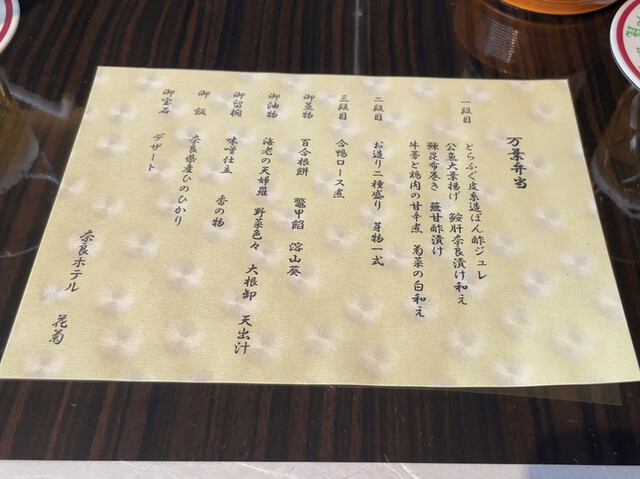 万葉弁当
一段目 とらふぐ皮糸造ぽん酢ジュレ
公魚大葉揚げ 鮟肝奈良漬け和え
鰊昆布巻き 蕪甘酢漬け
牛蒡と鶏肉の甘辛煮 菊菜の白和え
二段目 お造り二種盛り 芽物一式
三段目 合鴨ロース煮
御蓋物 百合根餅 鼈甲餡 溶山葵
御油物 海老の天婦羅 野菜色々 大根卸 天出汁
御留椀 味噌仕立 香の物
御飯 奈良県産ひのひかり
御宝石 デザート
奈良ホテル 花菊